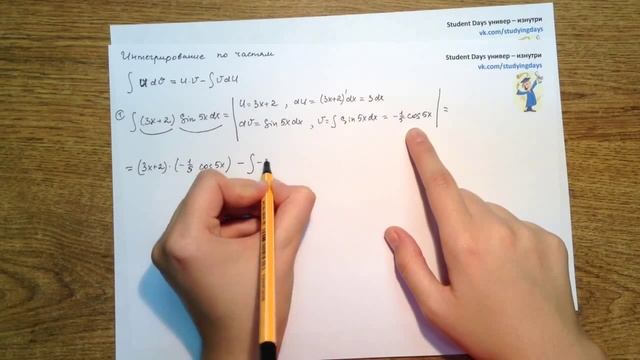 Student Days универ – изнутри
vk.com/studyingdays
Student Days универ – изнутри
vk.com/studyingdays
Интегрирование по частям
∫ u dv = u·v - ∫ v du
1) ∫ (3x+2) sin 5x dx = | u = 3x+2 , du = (3x+2)' dx = 3 dx
dv = sin 5x dx , v = ∫ sin 5x dx = -1/5 cos 5x | =
= (3x+2)·(-1/5 cos 5x) - ∫ -